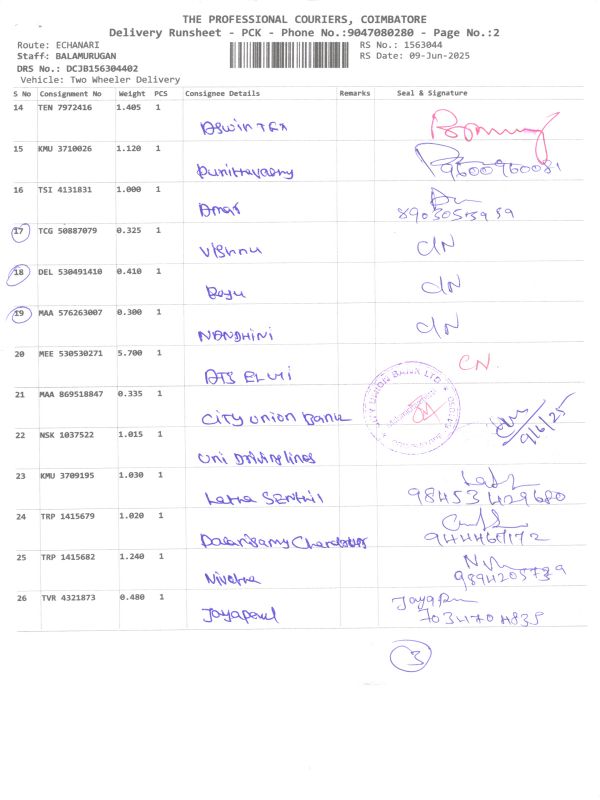 THE PROFESSIONAL COURIERS, COIMBATORE
Delivery Runsheet - PCK - Phone No.:9047080280 - Page No.:2
Route: ECHANARI RS No.: 1563044
Staff: BALAMURUGAN RS Date: 09-Jun-2025
DRS No.: DCJB156304402
Vehicle: Two Wheeler Delivery
S No Consignment No Weight PCS Consignee Details Remarks Seal & Signature
14 TEN 7972416 1.405 1
Aswin TEX
15 KMU 3710026 1.120 1
9600960081
16 TSI 4131831 1.000 1
Amar 8903055959
17 TCG 50887079 0.325 1
Vishnu C/N
18 DEL 530491410 0.410 1
C/N
19 MAA 576263007 0.300 1
NANDHINI C/N
20 MEE 530530271 5.700 1
CN.
21 MAA 869518847 0.335 1
City Union Bank
CITY UNION BANK LTD.
9/6/25
22 NSK 1037522 1.015 1
Uni Drivinglines
23 KMU 3709195 1.030 1
Latha SENTHIL
24 TRP 1415679 1.020 1
25 TRP 1415682 1.240 1
Nivetha
26 TVR 4321873 0.480 1
3